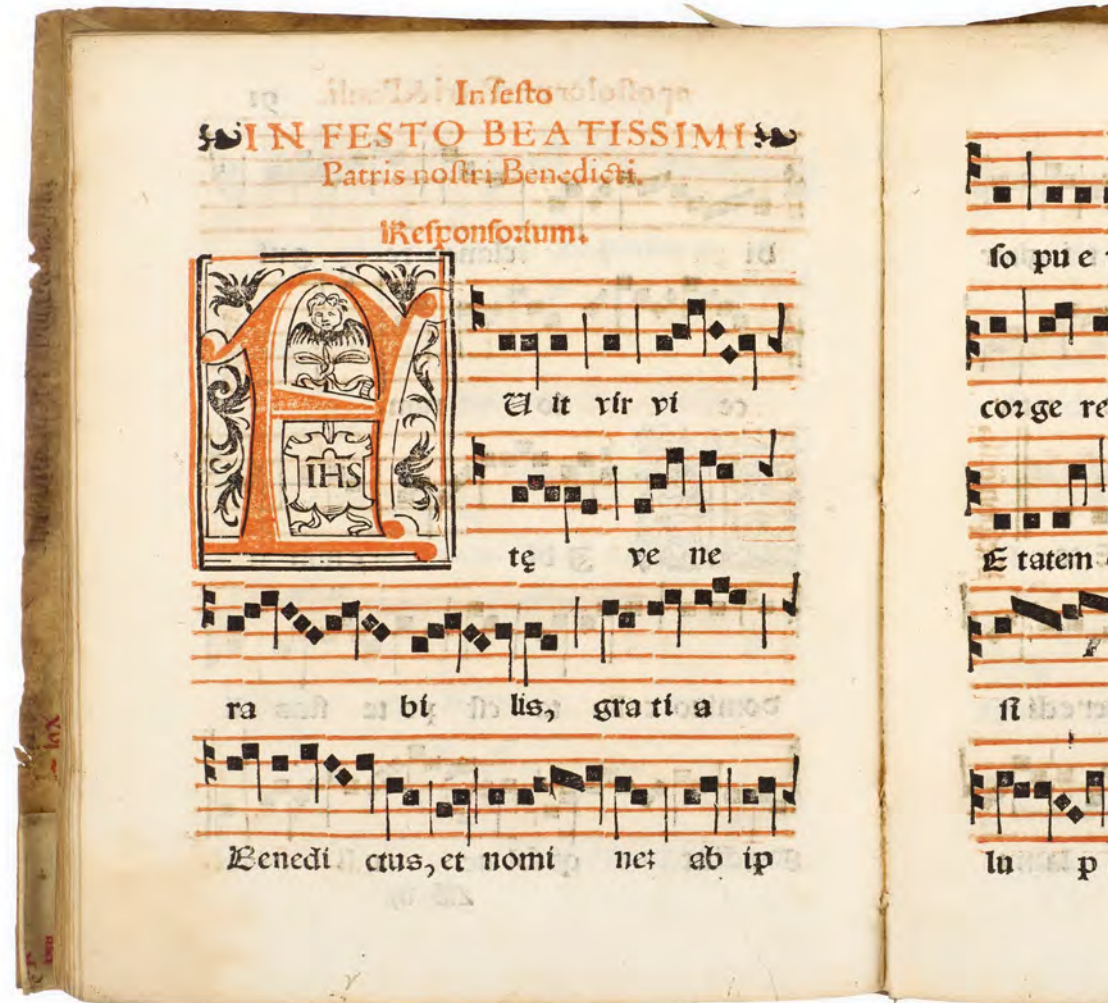 In festo
IN FESTO BEATISSIMI
Patris nostri Benedicti.
Responsorium.
IHS
A U it vir vi
tę ve ne
ra bi lis, gra ti a
Benedi ctus, et nomi ne: ab ip
so pu e
cor ge re
E tatem
si
lu p